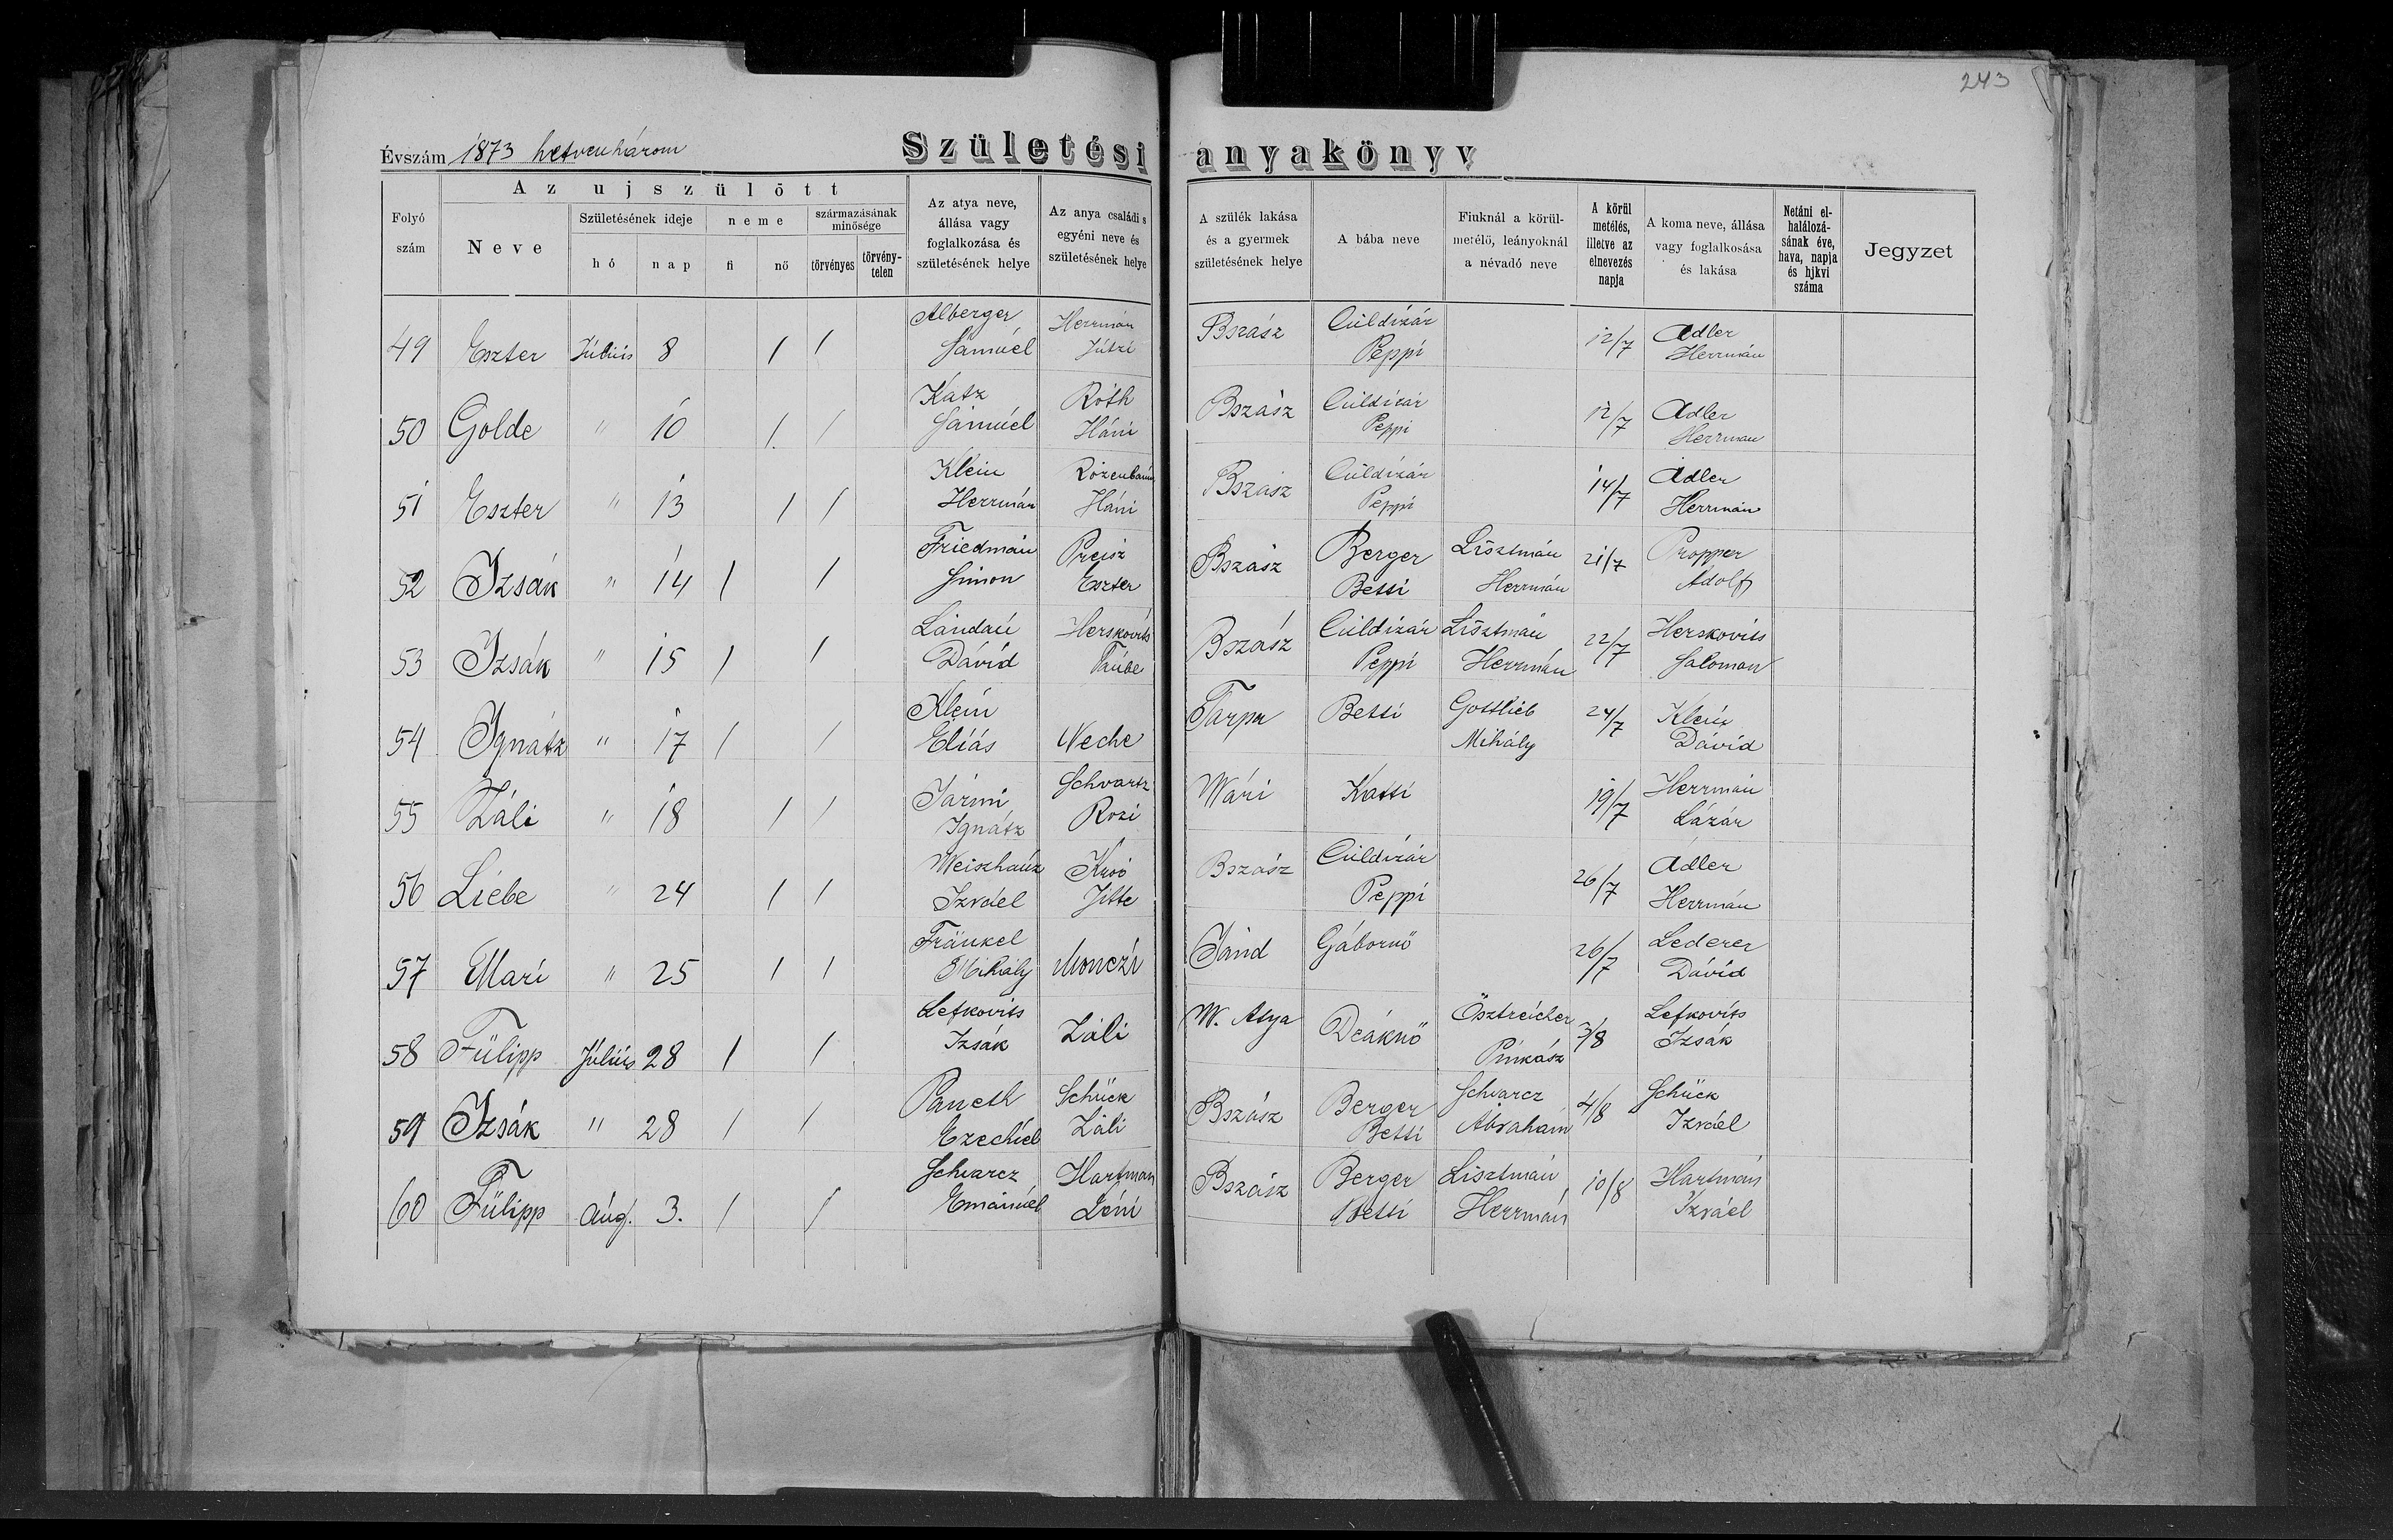 243
Évszám 1873 hetvenhárom Születési anyakönyv
Folyó szám
Az ujszülött
Neve
Születésének ideje
hó nap
neme
fi nö
származásának minősége
törvényes törvénytelen
Az atya neve, állása vagy foglalkozása és születésének helye
Az anya családi s egyéni neve és születésének helye
A szülék lakása és a gyermek születésének helye
A bába neve
Fiuknál a körülmetélő, leányoknál a névadó neve
A körül metélés, illetve az elnevezés napja
A koma neve, állása vagy foglalkosása és lakása
Netáni elhalálozásának éve, hava, napja és hjkvi száma
Jegyzet
49 Eszter Július 8 / / Alberger Sámuel Herrmán Jutzi Bszász Cúldizár Peppi 12/7 Adler Herrmán
50 Golde " 10 / / Katz Sámuel Róth Háni Bszász Cúldizár Peppi 12/7 Adler Herrman
51 Eszter " 13 / / Klein Herrmán Rózenbaum Háni Bszász Cúldizár Peppi 14/7 Adler Herrmán
52 Izsák " 14 / / Friedmán Simon Preisz Eszter Bszász Berger Betti Lisztmán Herrmán 21/7 Propper Adolf
53 Izsák " 15 / / Landau Dávid Herskovits Trube Bszász Cúldizár Peppi Lisztmán Herrmán 22/7 Herskovits Saloman
54 Ignátz " 17 / / Klein Eliás Neche Tarpa Betti Gottlieb Mihály 24/7 Klein Dávid
55 Záli " 18 / / Jármi Ignátz Schvartz Rozi Wári Katti 19/7 Herrmán Lázár
56 Liebe " 24 / / Weiszhauz Izráel Kroó Jitte Bszász Cúldizár Peppi 26/7 Adler Herrmán
57 Mari " 25 / / Fränkel Mihály Monczi Jánd Gábornö 26/7 Lederer Dávid
58 Fülipp Július 28 / / Lefkovits Izsák Záli W. Atya Deáknö Östreicher Pinkász 3/8 Lefkovits Izsák
59 Izsák " 28 / / Paneth Ezechiel Schück Záli Bszász Berger Betti Schvarcz Abrahám 4/8 Schück Izráel
60 Fülipp Aúg. 3. / / Schvarcz Emánuel Hartman Léni Bszász Berger Betti Lisztmán Herrmán 10/8 Hartmán Izráel